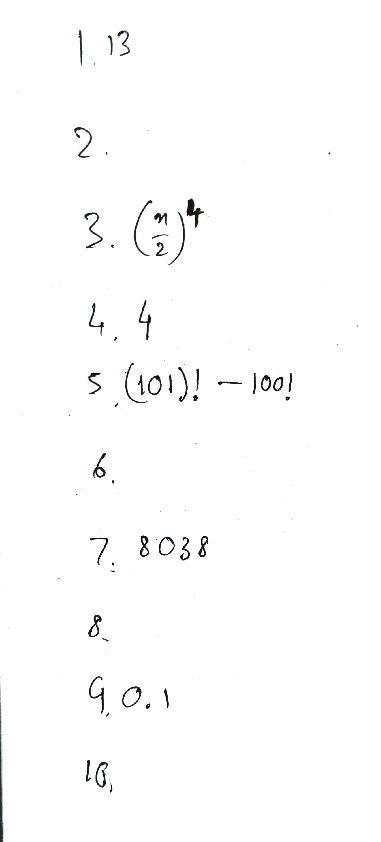 1. 13
2.
3. (n/2)^4
4. 4
5. (101)! - 100!
6.
7. 8038
8.
9. 0.1
10.